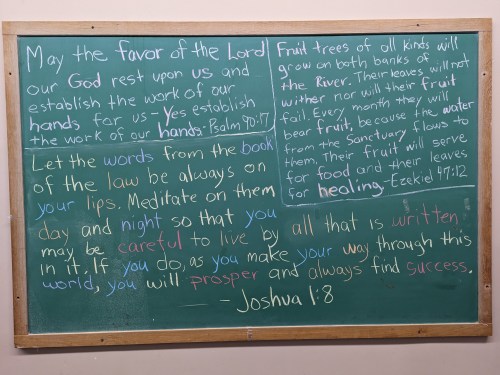 May the favor of the Lord
our God rest upon us and
establish the work of our
hands for us - Yes establish
the work of our hands. - Psalm 90:17
Fruit trees of all kinds will
grow on both banks of
the River. Their leaves will not
wither nor will their fruit
fail. Every month they will
bear fruit, because the water
from the Sanctuary flows to
them. Their fruit will serve
for food and their leaves
for healing. - Ezekiel 47:12
Let the words from the book
of the law be always on
your lips. Meditate on them
day and night so that you
may be careful to live by all that is written
in it. If you do, as you make your way through this
world, you will prosper and always find success.
- Joshua 1:8